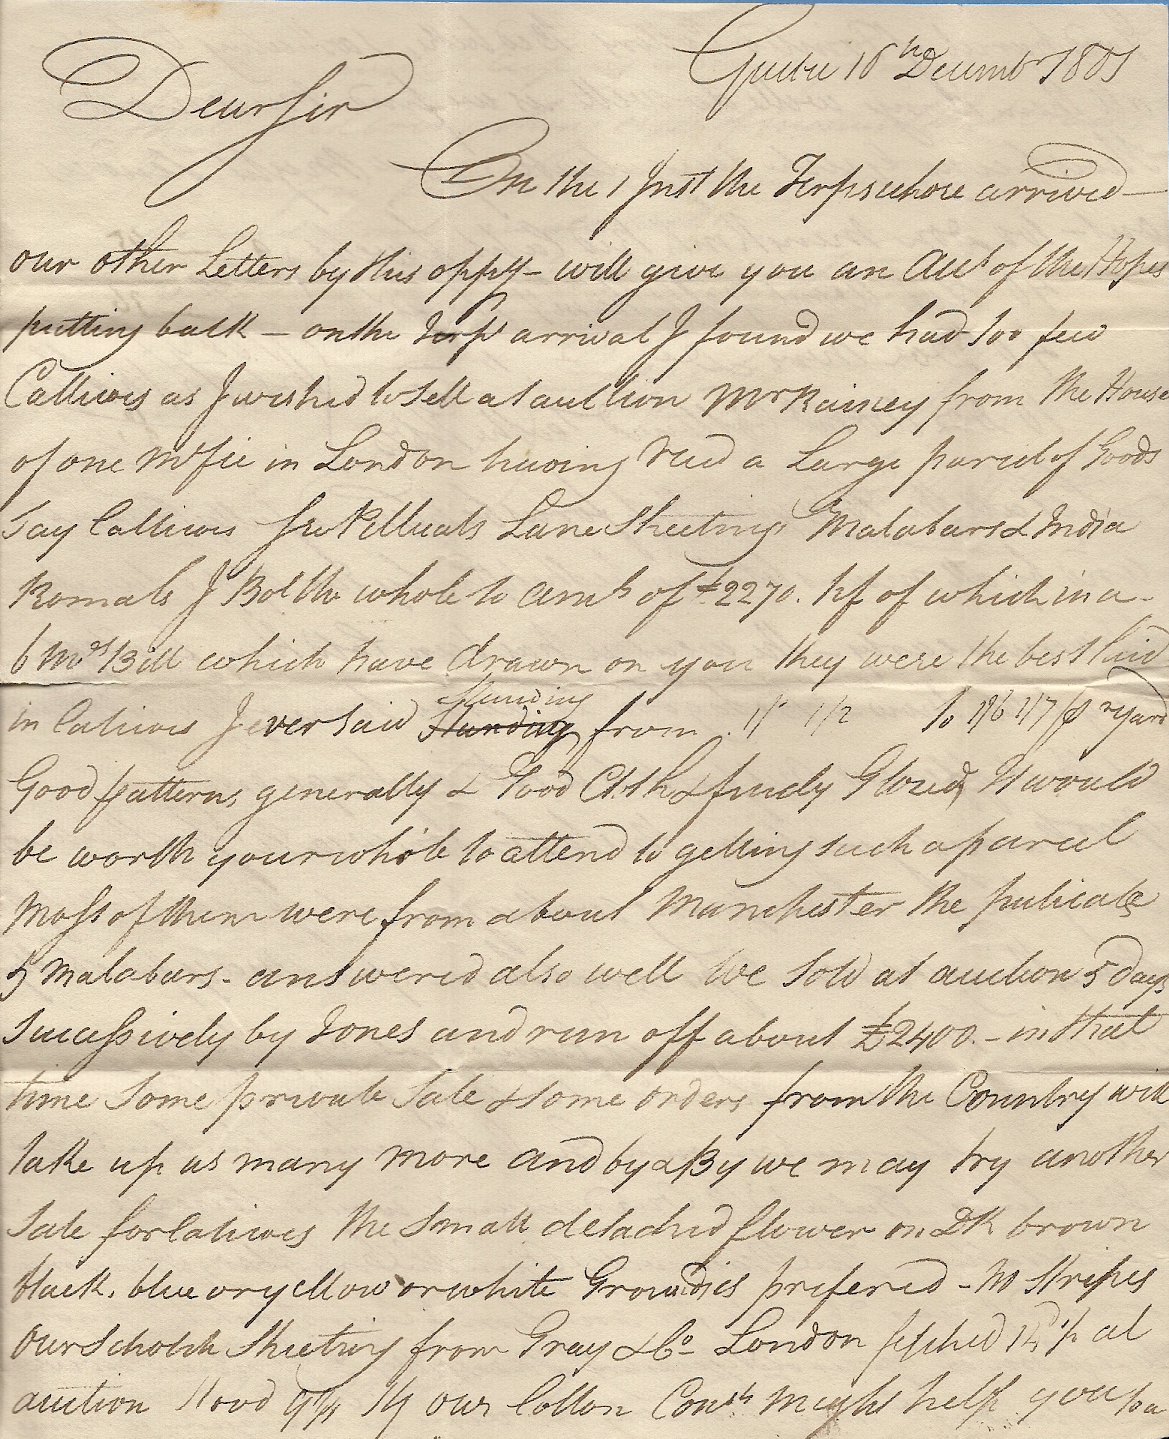 Quebec 16th Decembr 1801
Dear Sir
On the 1 Inst the Terpsichore arrived —
our other Letters by this oppy - will give you an Acct of the Hopes
putting back — on the Terps arrival I found we had too few
Callicoes as I wished to sell at auction Mr Rainey from the House
of one in London having recd a Large parcel of Goods
Say Callicoes Sheetings Malabars & India
Romals I Bot the whole to amt of £2270. hf of which in a -
6 Mos Bill which have drawn on you they were the best laid
in Calicoes I ever Saw Standing
Standing from 1/ 1/2 To 1/6 1/7 p Yard
Good patterns generally & Good Cloth & finely Glozed, It would
be worth your while to attend to getting such a parcel
Most of them were from about Manchester the pulicats
& Malabars - answered also well We Sold at auction 5 days
Successively by Jones and run off about £2400. - in that
time Some private Sale & some orders from the Country will
take up as many more and by & By we may try another
Sale for Calicoes the Small detached flower on Dk brown
black, blue or yellow or white Grounds prefered - no Stripes
Our Schotch Sheeting from Gray & Co London fetched at
auction Stood our Cotton might help you